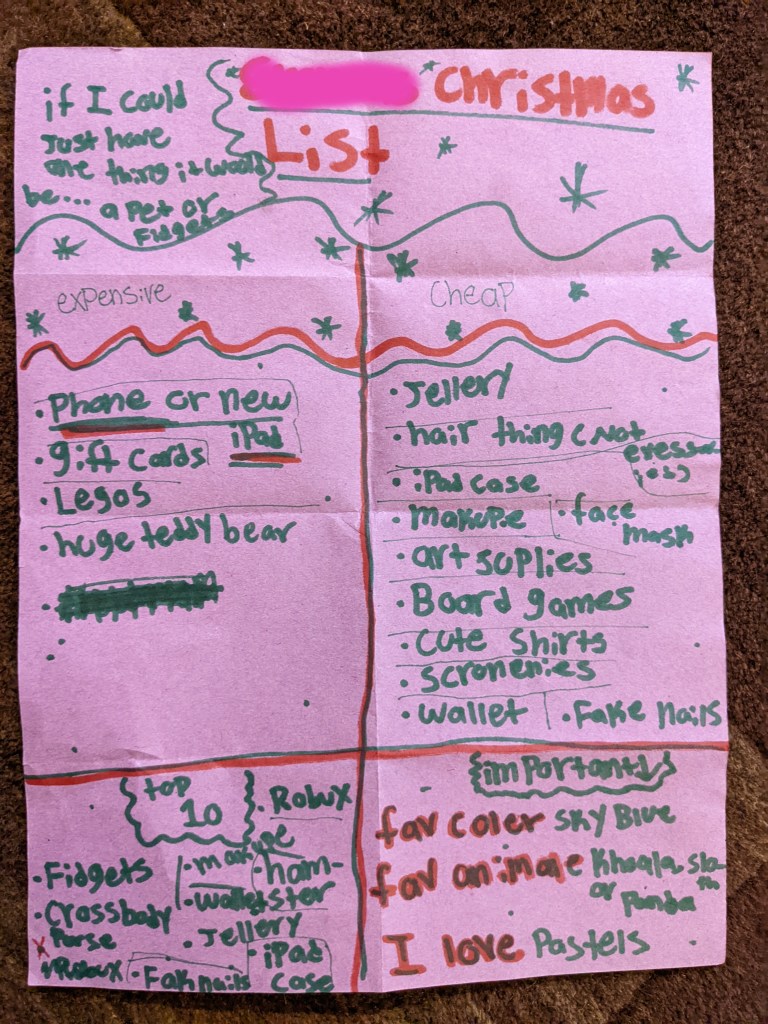 if I could
Just have
one thing it would
be... a Pet or
Fidgets
Christmas
List
expensive
Cheap
· Phone or new
iPad
· gift cards
· Legos
· huge teddy bear
· Jellery
· hair thing (Not
· iPad case
· makupe · face
mask
· art suplies
· Board games
· cute shirts
· scronenies
· wallet · Fake nails
top
10
· Robux
· Fidgets
· Crossbody
Purse
· makupe
· wallet
· ham-
ster
· Jellery
· Fak nails
iPad
case
important!
fav coler sky Blue
fav animale Khoala
or Panda
I love Pastels